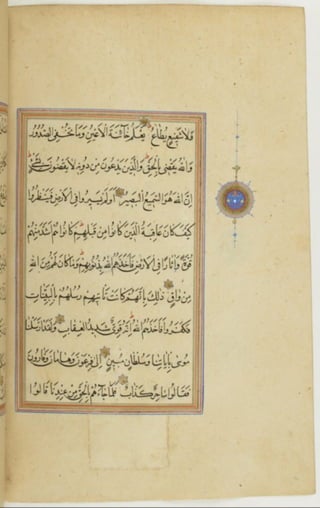 ولا شفيع يطاع يعلم خائنة الاعين وما تخفي الصدور
والله يقضي بالحق والذين يدعون من دونه لا يقضون بشيء
ان الله هو السميع البصير اولم يسيروا في الارض فينظروا
كيف كان عاقبة الذين كانوا من قبلهم كانوا هم اشد منهم
قوة واثارا في الارض فاخذهم الله بذنوبهم وما كان لهم من الله
من واق ذلك بانهم كانت تاتيهم رسلهم بالبينات
فكفروا فاخذهم الله انه قوي شديد العقاب ولقد ارسلنا
موسى باياتنا وسلطان مبين الى فرعون وهامان وقارون
فقالوا ساحر كذاب فلما جاءهم بالحق من عندنا قالوا